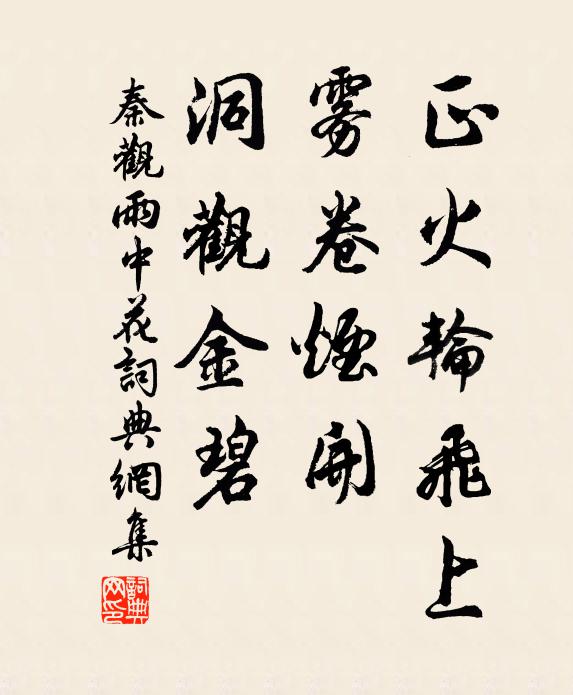 正火輪飛上
雾卷煙開
洞觀金碧
秦觀雨中花詞典網集
詞典网印